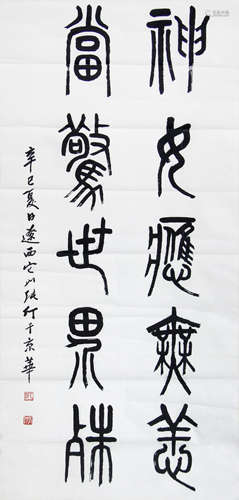 神女應無恙
當驚世界殊
辛巳夏日遼西它山張仃于京華